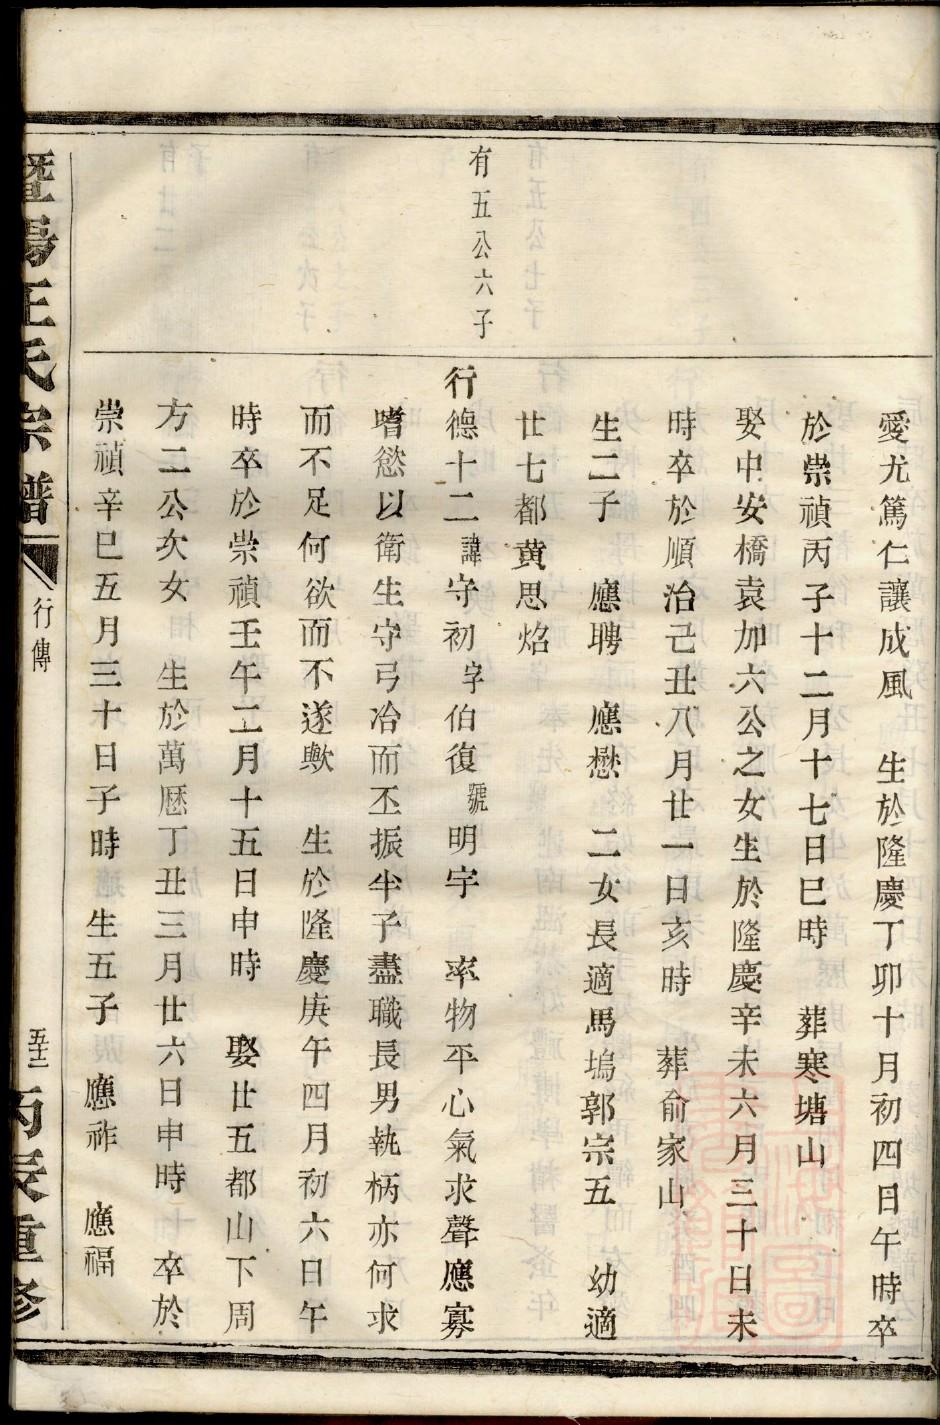 愛尤篤仁讓成風　生於隆慶丁卯十月初四日午時卒
於崇禎丙子十二月十七日巳時　葬寒塘山
娶中安橋袁加六公之女生於隆慶辛未六月三十日未
時卒於順治己丑八月廿一日亥時　葬俞家山
生二子　應聘　應懋　二女長適馬塢郭宗五　幼適
廿七都黄思焰
有五公六子
行德十二諱守初字伯復號明宇　率物平心氣求聲應寡
嗜慾以衛生守弓冶而丕振半子盡職長男執柄亦何求
而不足何欲而不遂歟　生於隆慶庚午四月初六日午
時卒於崇禎壬午二月十五日申時　娶廿五都山下周
方二公次女　生於萬曆丁丑三月廿六日申時　卒於
崇禎辛巳五月三十日子時生五子　應祚　應福
暨陽王氏宗譜
行傳
五十二
丙辰重修